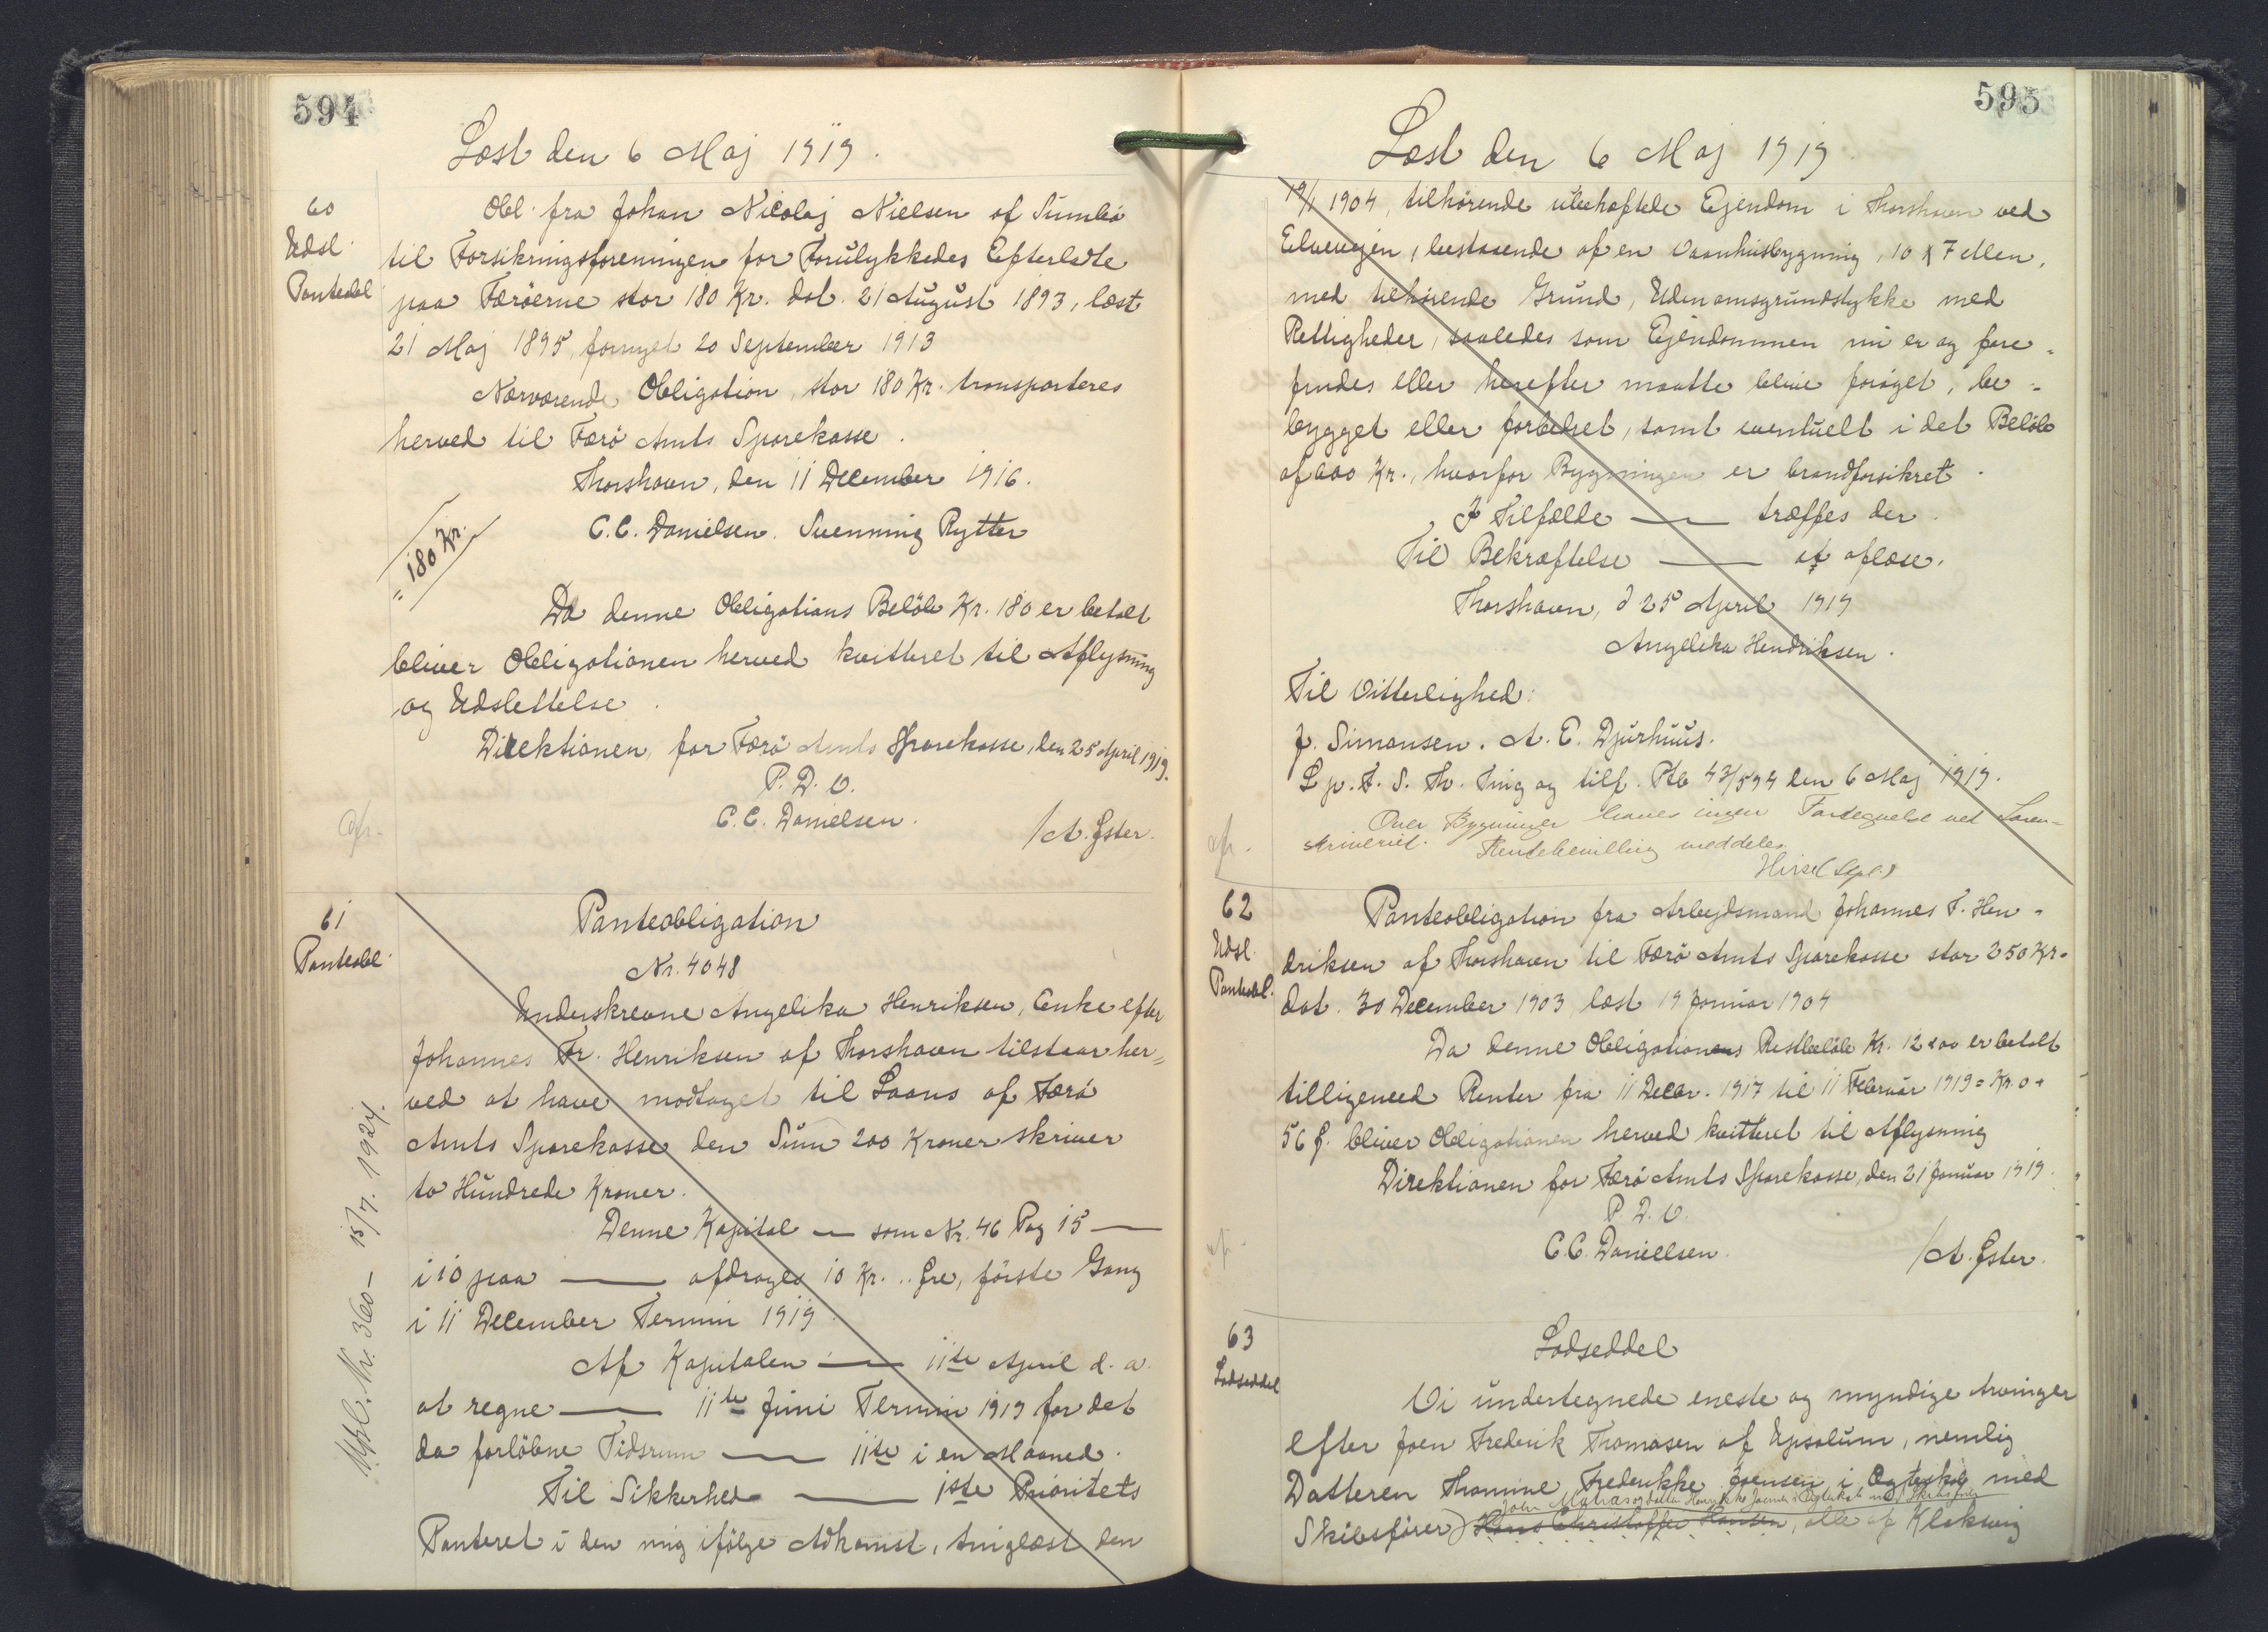 594
Læst den 6 Maj 1919.
60
Udsl.
Panteobl
Obl. fra Johan Nicolaj Nielsen af Sumbø
til Forsikringsforeningen for Forulykkedes Efterladte
paa Færöerne stor 180 Kr. dat. 21 August 1893, læst
21 Maj 1895, fornyet 20 September 1913
Nærværende Obligation, stor 180 Kr. transporteres
herved til Færö Amts Sparekasse.
Thorshavn, den 11 December 1916.
C.C. Danielsen. Svenning Rytter
" 180 Kr.
Da denne Obligations Belöb Kr. 180 er betalt
bliver Obligationen herved kvitteret til Aflysning
og Udslettelse.
Direktionen for Færö Amts Sparekasse, den 25 April 1919.
P. D. V.
C.C. Danielsen.
/A. Ester.
afr.
61
Panteobl.
Panteobligation
Nr. 4048
Underskrevne Angelika Henriksen, Enke efter
Johannes Fr. Henriksen af Thorshavn tilstaar her=
ved at have modtaget til Laans af Færö
Amts Sparekasse den Sum 200 Kroner skriver
to Hundrede Kroner.
Denne Kapital — som Nr. 46 Pag 15 —
i 10 paa — afdrages 10 Kr. .. Øre, förste Gang
i 11 December Termin 1919
Af Kapitalen — 11te April d. a.
at regne — 11te Juni Termin 1919 for det
da forløbne Tidsrum — 11te i en Maaned.
Til Sikkerhed — 1ste Prioritets
Panteret i den mig ifölge Adkomst, tinglæst den
Udsl. Nr. 360 - 15/7. 1924.
595
Læst den 6 Maj 1919
19/1 1904, tilhörende ubehæftede Ejendom i Thorshavn ved
Elvevejen, bestaaende af en Vaanhusbygning, 10 x 7 Alen,
med tilhörende Grund, Udenomsgrundstykke med
Rettigheder, saaledes som Ejendommen nu er og fore=
findes eller herefter maatte blive forøget, be=
bygget eller forbedret, samt eventuelt i det Belöb
af 600 Kr., hvorfor Bygningen er brandforsikret.
I Tilfælde — træffes der.
Til Bekræftelse — at aflæse.
Thorshavn, d 25 April 1919
Angelika Hendriksen.
Til Vitterlighed:
J. Simonsen. A. C. Djurhuus.
L p. F. S. Th. Ting og tilf. Ptb 43/594 den 6 Maj 1919.
Over Bygninger haves ingen Fortegnelse ved Soren=
skriveriet. Stentebevilling meddeles.
Hirse(Sept.)
afr.
62
Udsl.
Panteobl.
Panteobligation fra Arbejdsmand Johannes F. Hen=
driksen af Thorshavn til Færö Amts Sparekasse stor 250 Kr.
dat. 30 December 1903, læst 19 Januar 1904
Da denne Obligations Restbelöb Kr. 12 x 00 er betalt
tilligemed Renter fra 11 Decbr. 1917 til 11 Februar 1919 = Kr. 0 +
56 Ø. bliver Obligationen herved kvitteret til Aflysning
Direktionen for Færö Amts Sparekasse, den 21 Januar 1919.
P. D. V.
C.C. Danielsen.
/A. Ester.
63
Lodseddel
Lodseddel
Vi undertegnede eneste og myndige Arvinger
efter Joen Frederik Thomasen af Uppsalum, nemlig
Datteren Thomine Frederikke Joensen i Ægteskab med
John Matras og datter Henrikke Joensen i Ægteskab med Skibsförer
Skibsförer) Hans Christoffer Hansen, alle af Klaksvig